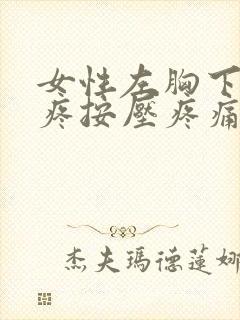 女性左胸下
疼按壓疼痛
杰夫瑪德蓮娜